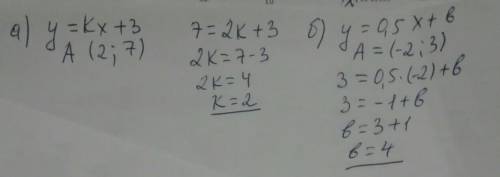 а) y = Kx + 3
A (2; 7)
7 = 2K + 3
2K = 7 - 3
2K = 4
K = 2
б) y = 0,5 x + в
A = (-2; 3)
3 = 0,5 · (-2) + в
3 = -1 + в
в = 3 + 1
в = 4